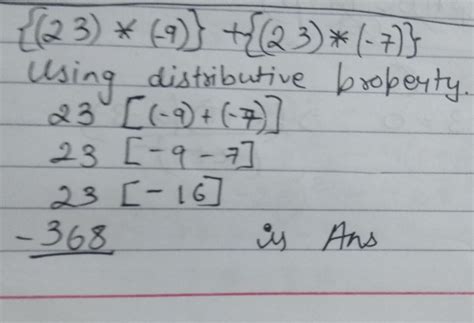 {(23) * (-9)} + {(23) * (-7)}
Using distributive property.
23 [(-9) + (-7)]
23 [-9 - 7]
23 [-16]
-368 is Ans